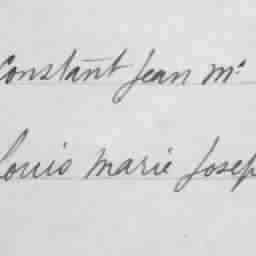 Constant Jean Mc
Louis Marie Josep